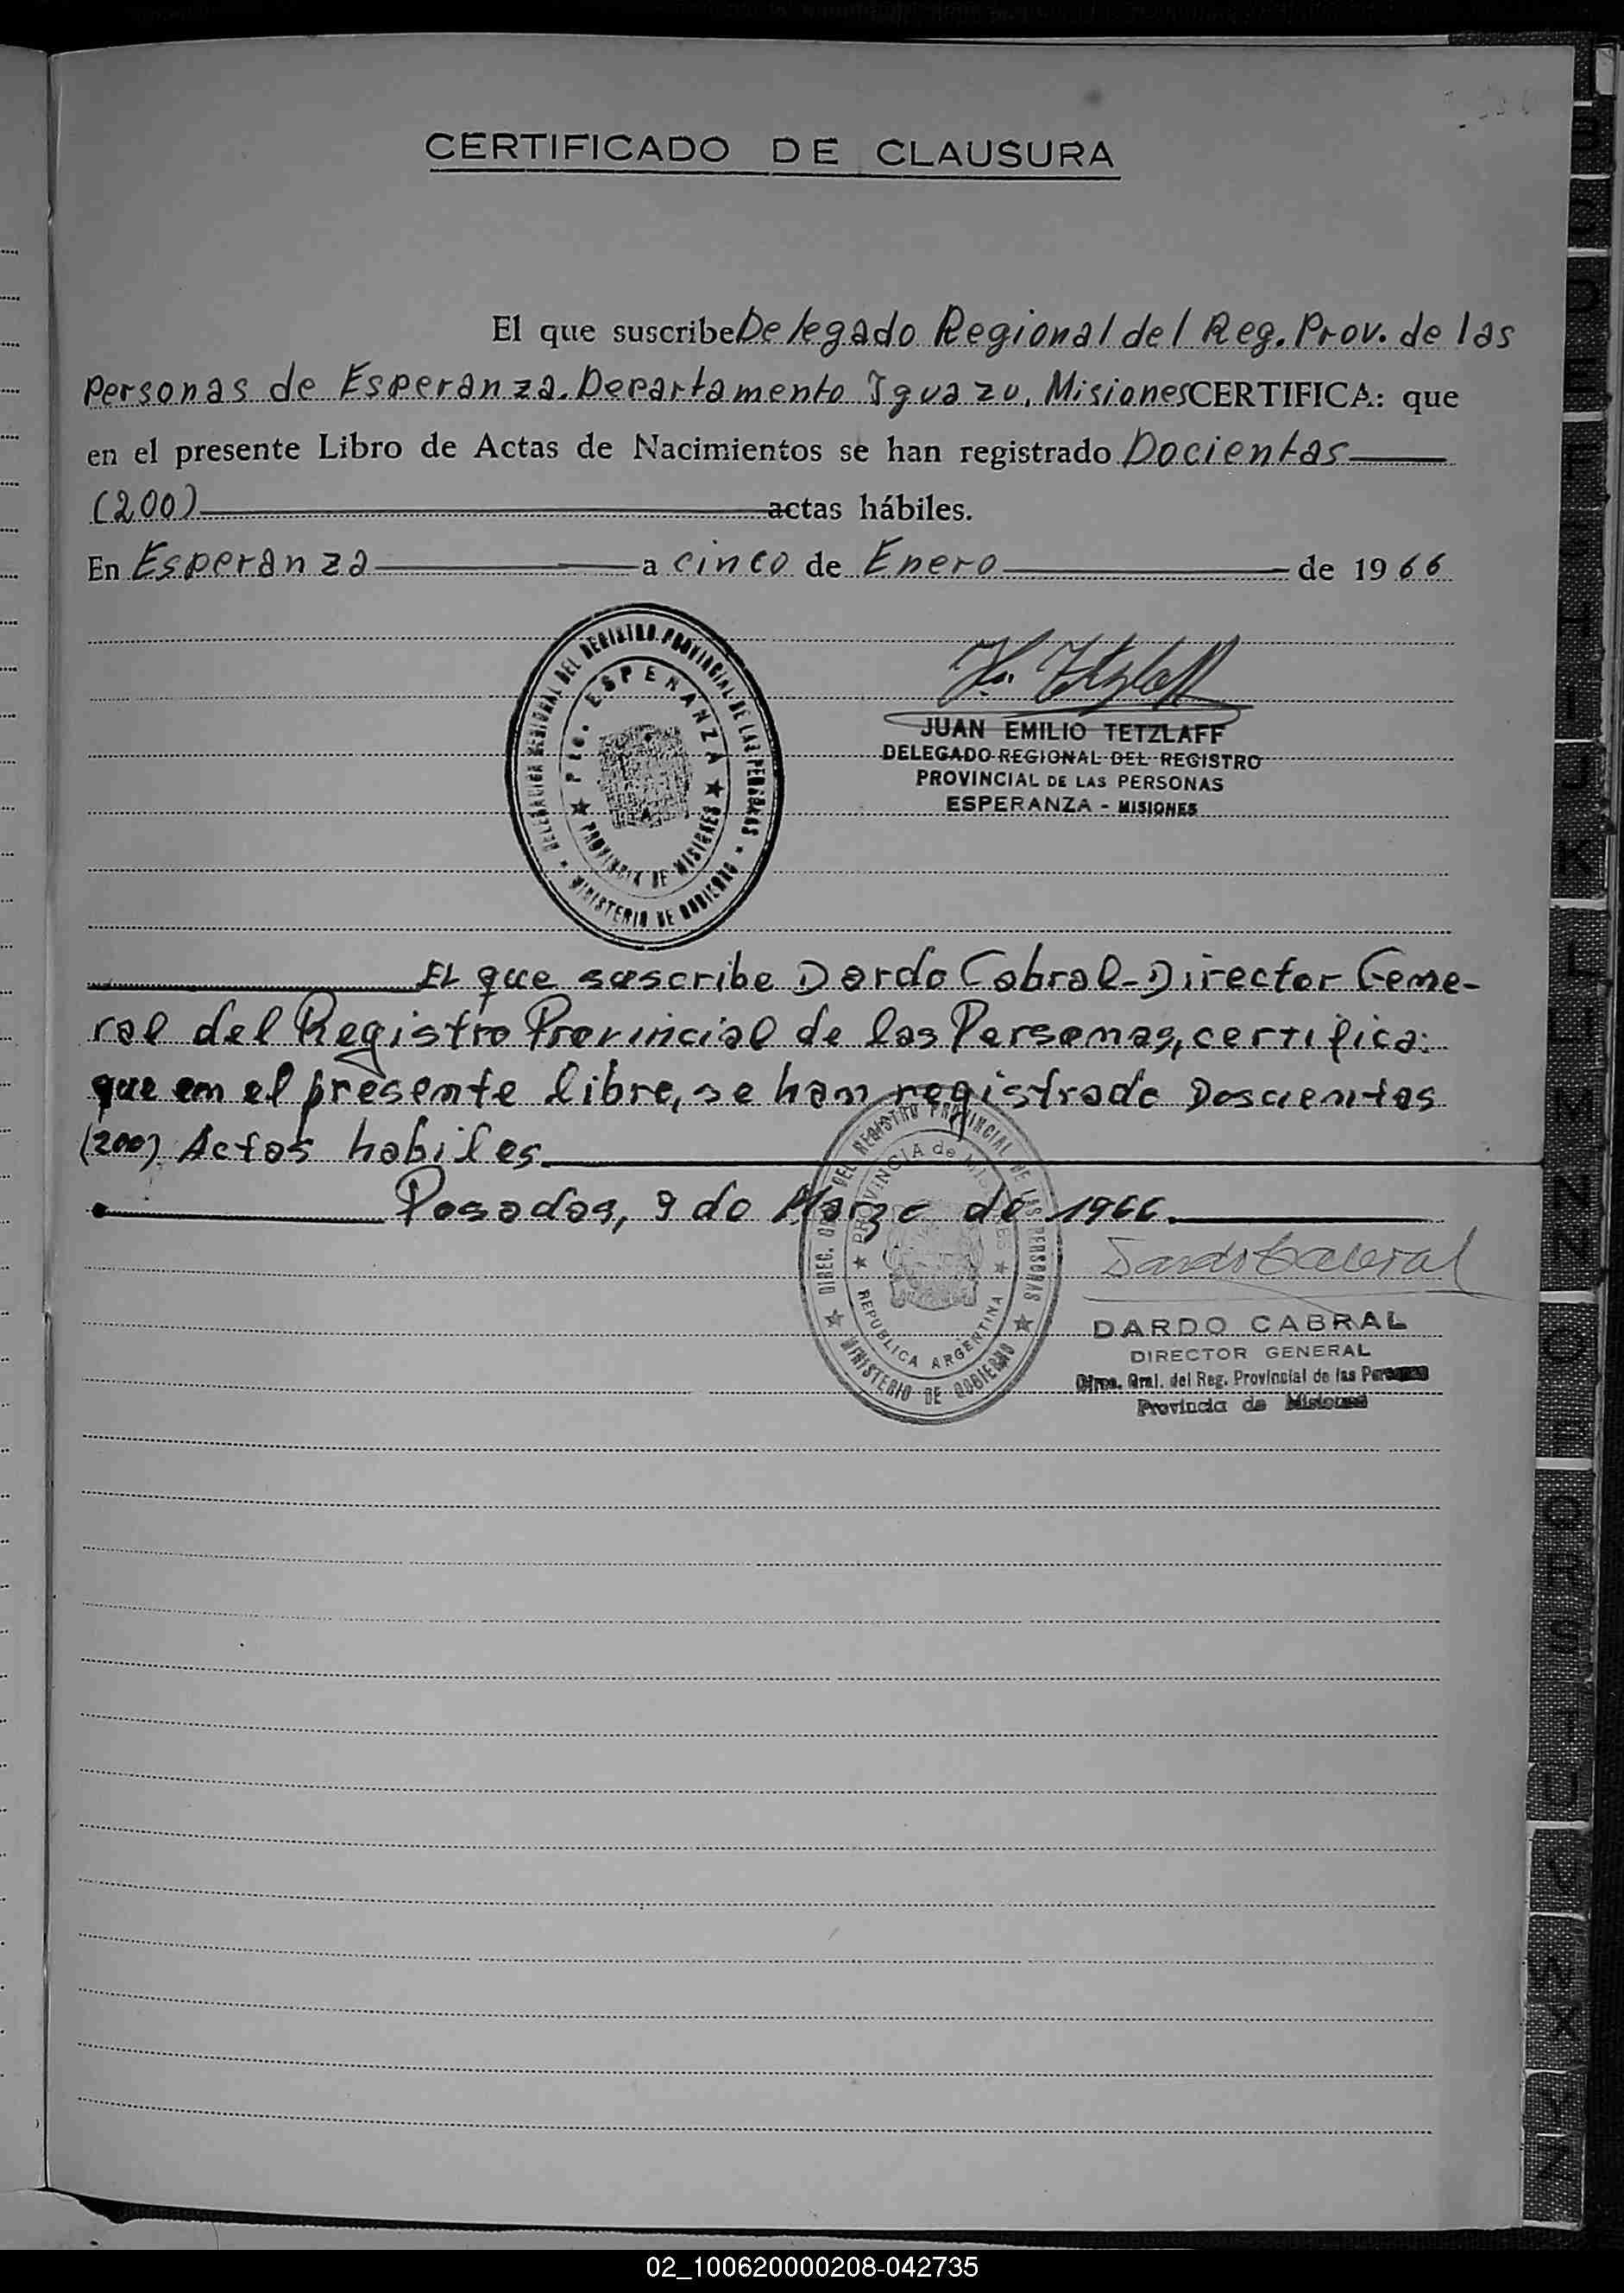 CERTIFICADO DE CLAUSURA
El que suscribe Delegado Regional del Reg. Prov. de las
Personas de Esperanza. Departamento Iguazu, Misiones CERTIFICA: que
en el presente Libro de Actas de Nacimientos se han registrado Docientas
(200) actas hábiles.
En Esperanza a cinco de Enero de 1966
DELEGACION REGIONAL DEL REGISTRO PROVINCIAL DE LAS PERSONAS
Pto. ESPERANZA
PROVINCIA DE MISIONES
MINISTERIO DE GOBIERNO
Tetzlaff
JUAN EMILIO TETZLAFF
DELEGADO REGIONAL DEL REGISTRO
PROVINCIAL DE LAS PERSONAS
ESPERANZA - MISIONES
El que suscribe Dardo Cabral - Director Gene-
ral del Registro Provincial de las Personas, certifica:
que en el presente libro, se han registrado Doscientas
(200) Actas habiles.
Posadas, 9 de Marzo de 1966.
DIREC. GRAL. DEL REGISTRO PROVINCIAL DE LAS PERSONAS
PROVINCIA de MISIONES
REPUBLICA ARGENTINA
MINISTERIO DE GOBIERNO
Dardo Cabral
DARDO CABRAL
DIRECTOR GENERAL
Direc. Gral. del Reg. Provincial de las Personas
Provincia de Misiones
B
C
D
E
F
I
J
K
L
M
N
Ñ
O
P
Q
R
S
T
U
V
W
X
Y
Z
02_100620000208-042735